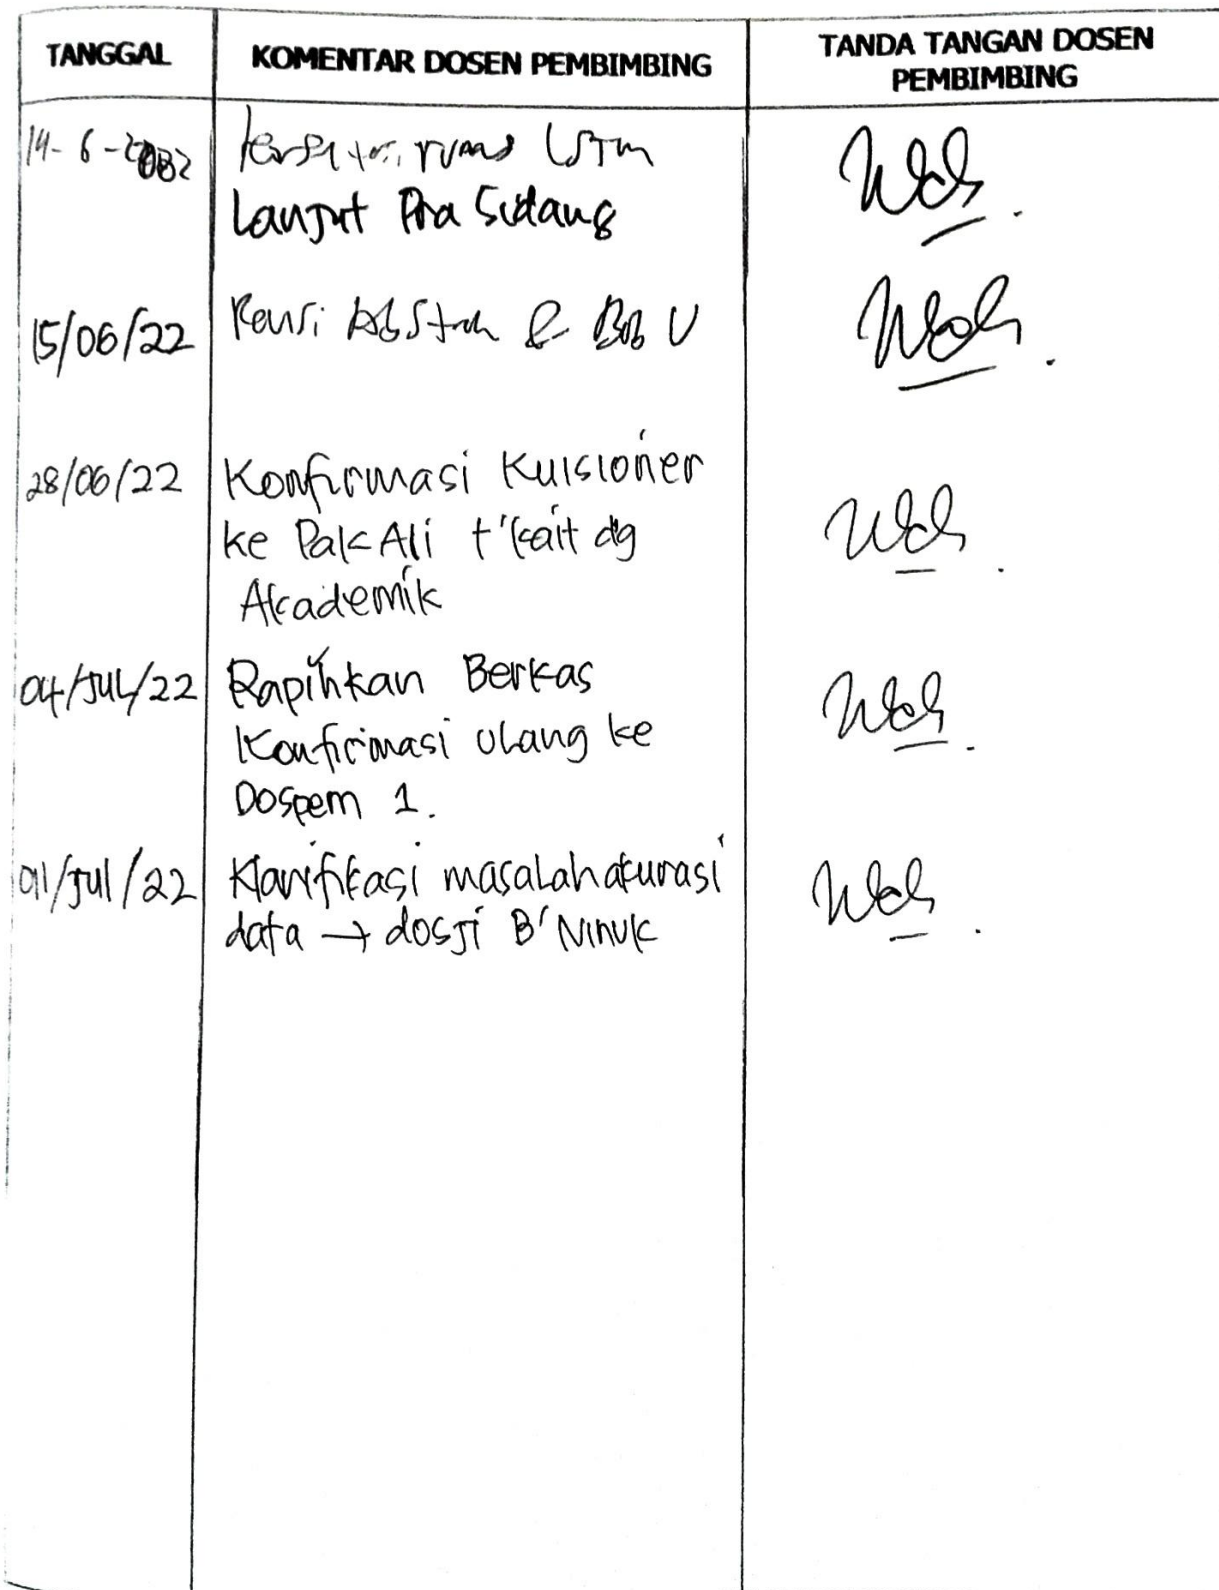 TANGGAL
KOMENTAR DOSEN PEMBIMBING
TANDA TANGAN DOSEN
PEMBIMBING
14-6-2022
LSTM
Lanjut Pra Sidang
15/06/22
Revisi Abstrak & Bab V
28/06/22
Konfirmasi Kuisioner
ke Pak Ali t'kait dg
Akademik
04/JUL/22
Rapihkan Berkas
Konfirmasi ulang ke
Dospem 1.
/Jul/22
Klarifikasi masalah akurasi
data → dosji B' Ninuk